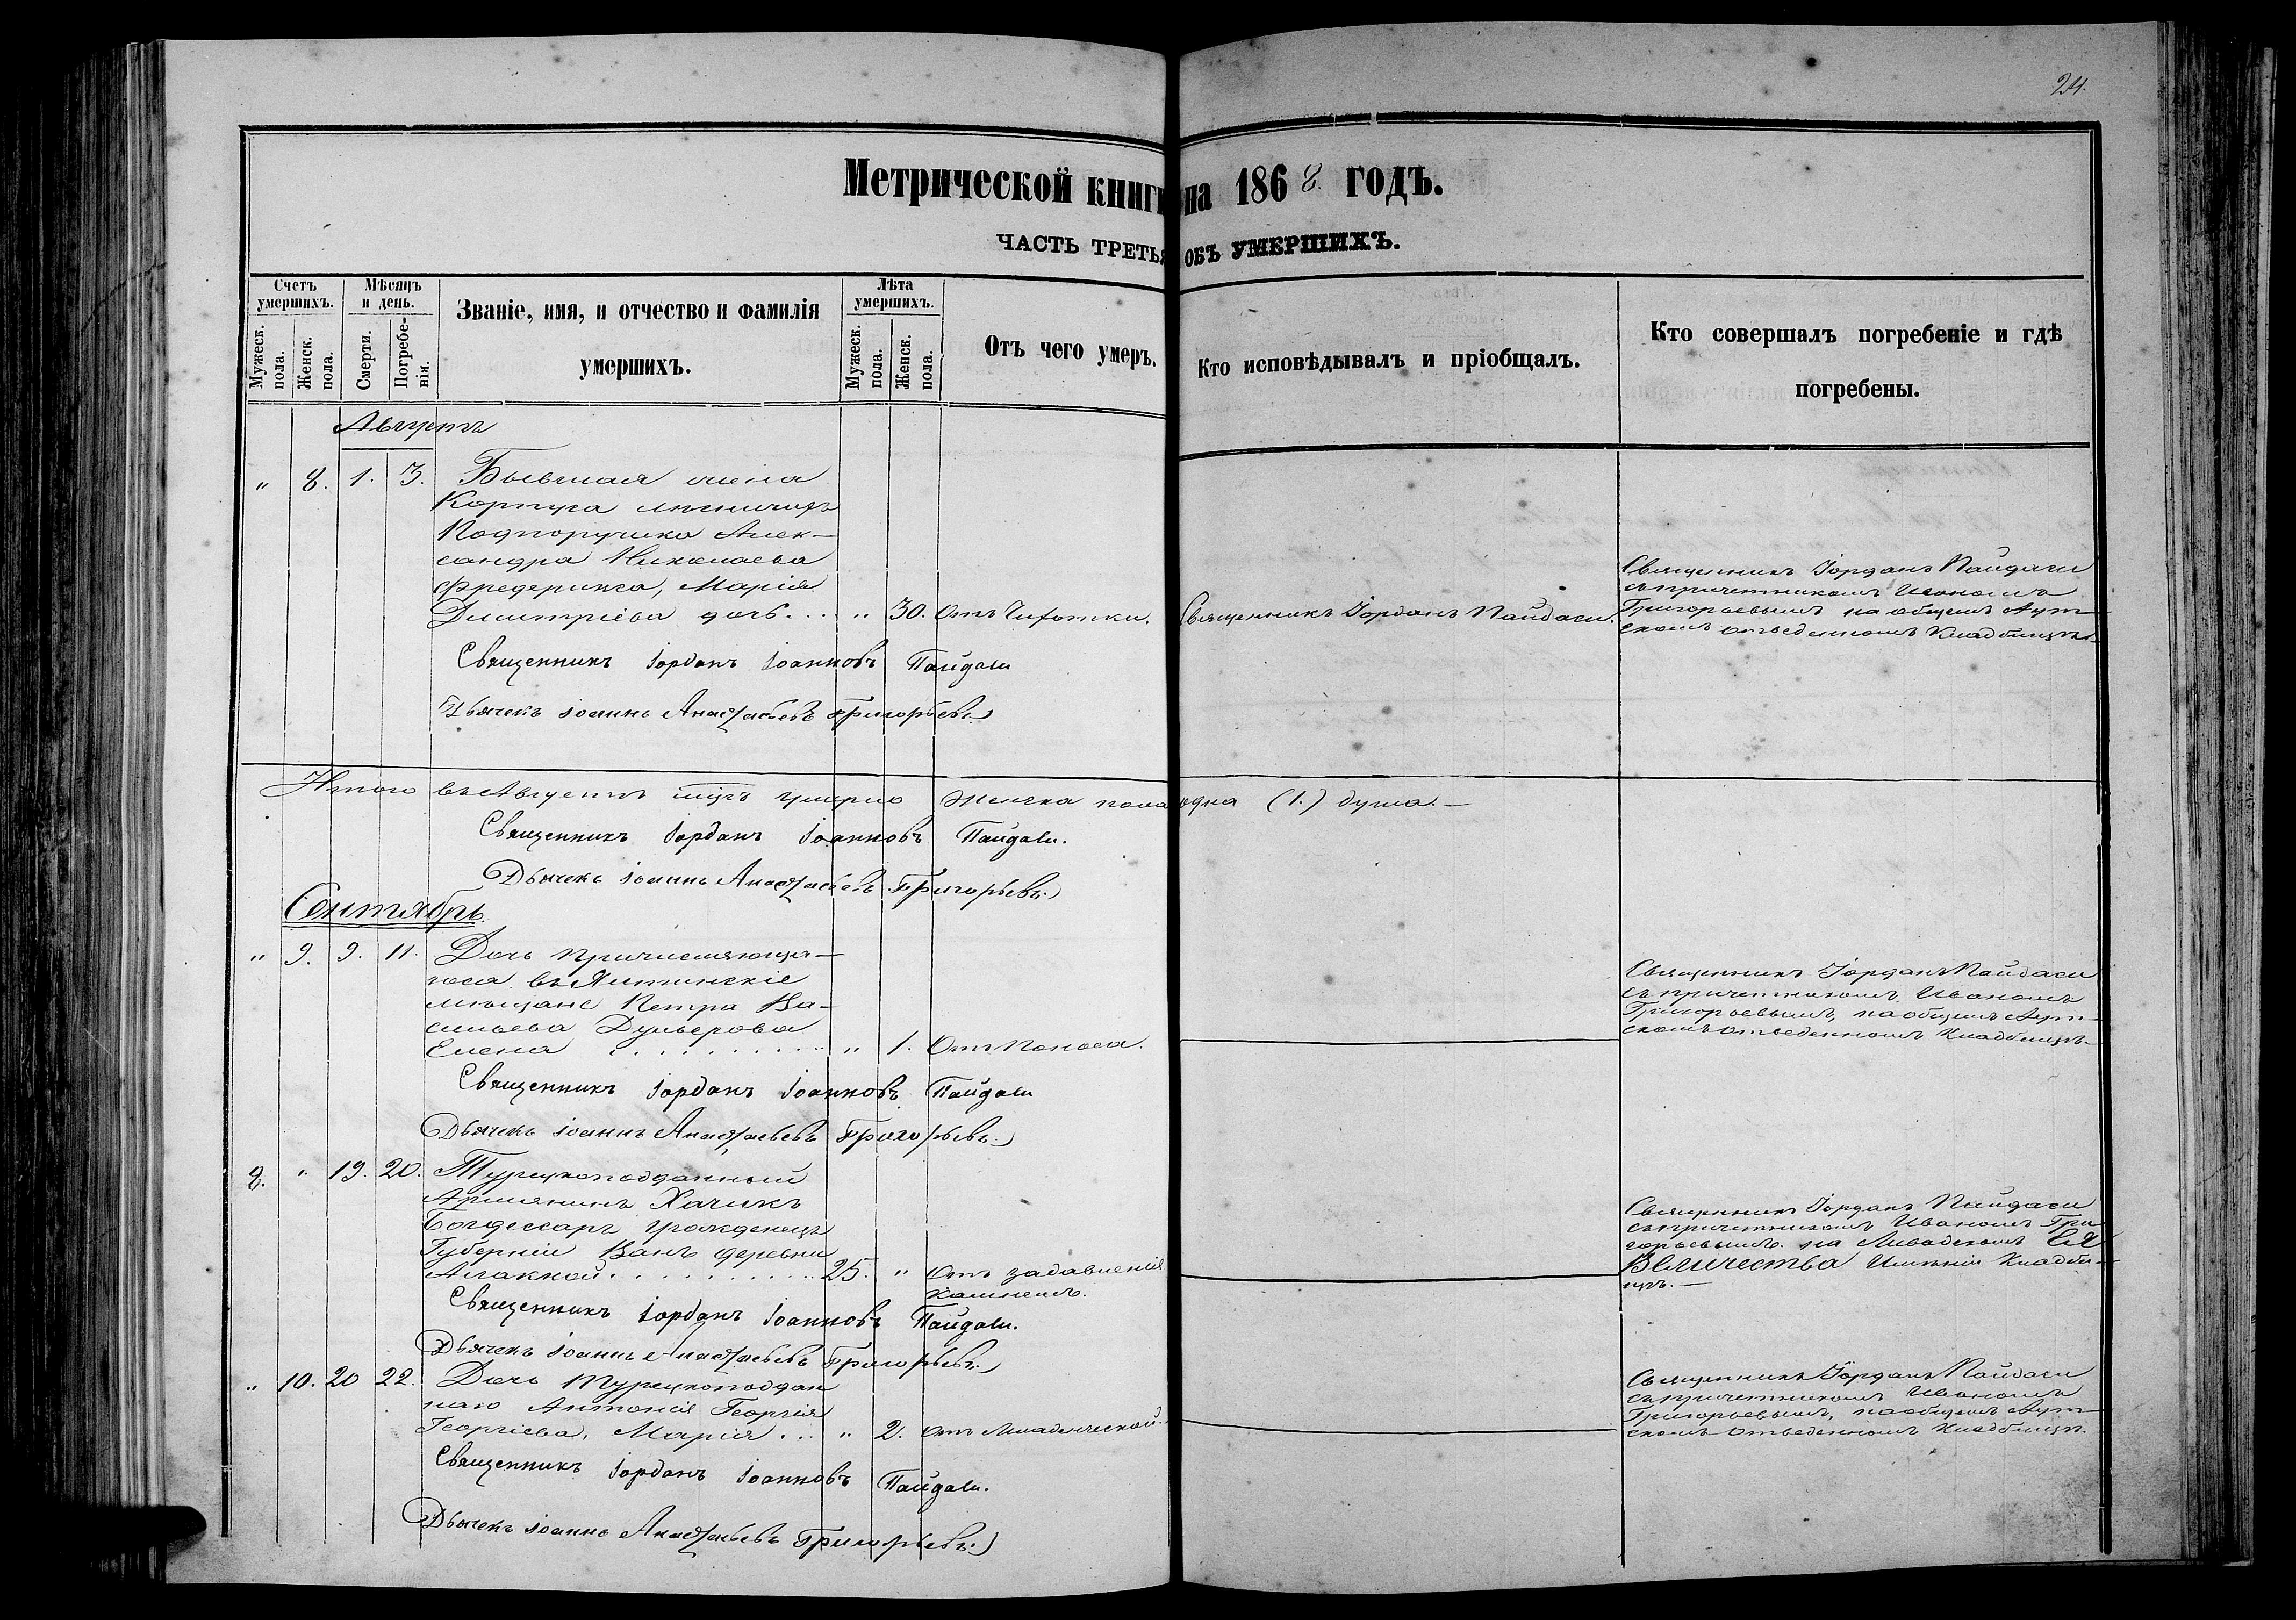 24.
Метрической книги на 1868. годъ.
ЧАСТЬ ТРЕТЬЯ ОБЪ УМЕРШИХЪ.
Счетъ умершихъ.
Мужеск. пола.
Женск. пола.
Мѣсяцъ и день.
Смерти.
Погребенія.
Званіе, имя, и отчество и фамилія
умершихъ.
Лѣта умершихъ.
Мужеск. пола.
Женск. пола.
Отъ чего умеръ.
Кто исповѣдывалъ и пріобщалъ.
Кто совершалъ погребеніе и гдѣ
погребены.
Августъ
" 8. 1. 3. Бывшая жена
Корпуса лѣсничихъ
Подпоручика Алек-
сандра Николаева
Фредерикса, Марія
Димитріева дочь. . . . " 30. Отъ Чахотки. Священникъ Іорданъ Пайдаси.
Священникъ Іорданъ Пайдаси
съ причетникомъ Иваномъ
Григорьевымъ на общемъ Аут-
скомъ отведенномъ Кладбищѣ.
Священникъ Іорданъ Іоанновъ Пайдаси
Дьячекъ Іоаннъ Анастасьевъ Григорьевъ
Итого въ Августѣ мцѣ умерло Женска пола одна (1.) душа.—
Священникъ Іорданъ Іоанновъ Пайдаси.
Дьячекъ Іоаннъ Анастасьевъ Григорьевъ
Сентябрь.
" 9. 9. 11. Дочь причисляюща-
гося въ Ялтинскіе
мѣщане Петра Ва-
сильева Дульерова
Елена . . . . . . . . " 1. Отъ Поноса.
Священникъ Іорданъ Пайдаси
съ причетникомъ Иваномъ
Григорьевымъ, на общемъ Аут-
скомъ отведенномъ Кладбищѣ.
Священникъ Іорданъ Іоанновъ Пайдаси
Дьячекъ Іоаннъ Анастасьевъ Григорьевъ
8. " 19. 20. Турецкоподданный
Армянинъ Хачикъ
урожденецъ
Губерніи Ванъ деревни
. . . . . . . . 25. " Отъ задавленія
камнемъ.
Священникъ Іорданъ Пайдаси
съ причетникомъ Иваномъ Гри
горьевымъ. на Ливадскомъ Ея
Величества Имѣніи Кладби-
щѣ.—
Священникъ Іорданъ Іоанновъ Пайдаси.
Дьячекъ Іоаннъ Анастасьевъ Григорьевъ
" 10. 20 22. Дочь Турецкоподдан
наго Антонія Георгія
Георгіева, Марія . . . " 2. Отъ Младенческой.
Священникъ Іорданъ Пайдаси
съ причетникомъ Иваномъ
Григорьевымъ, на общемъ Аут-
скомъ отведенномъ Кладбищѣ.
Священникъ Іорданъ Іоанновъ Пайдаси.
Дьячекъ Іоаннъ Анастасьевъ Григорьевъ